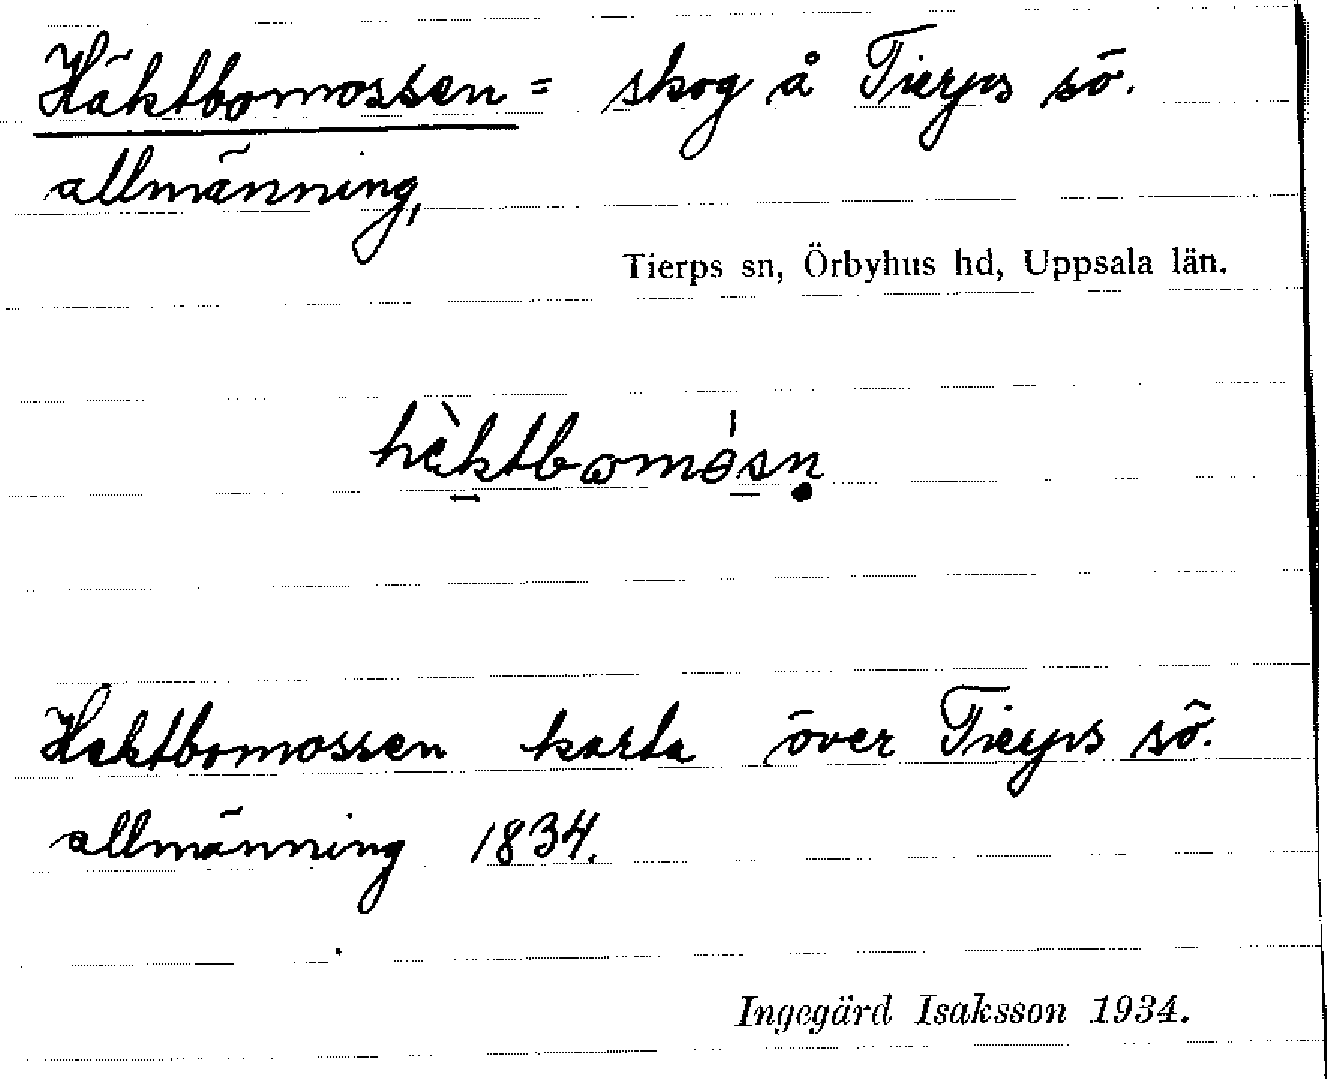 Häktbomossen = skog å Tierps sö.
allmänning,
Tierps sn, Örbyhus hd, Uppsala län.
hèktbomósn̥
Hektbomossen karta över Tierps sö.
allmänning 1834.
Ingegärd Isaksson 1934.